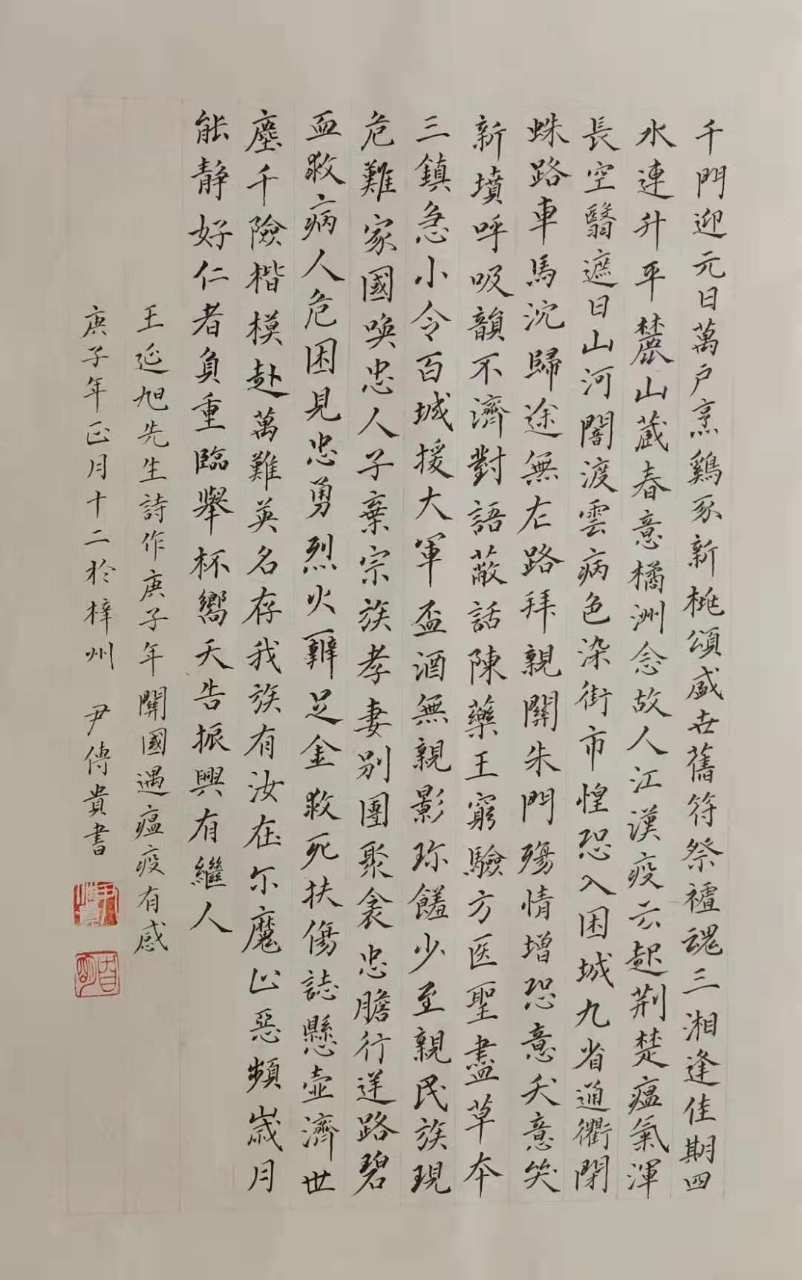 千門迎元日萬戶烹鷄豕新桃頌盛世舊符祭禮魂三湘逢佳期四
水連升平麓山藏春意橘洲念故人江漢疫云起荆楚瘟氣渾
長空翳遮日山河闇渡雲病色染街市惶恐入困城九省通衢閉
蛛路車馬沉歸途無左路拜親關朱門殤情增恐意天意笑
新墳呼吸韻不濟對語蔽話陳藥王窮驗方医聖盡草本
三鎮急小令百城援大軍盃酒無親影珍饈少至親民族現
危難家國喚忠人子棄宗族孝妻別團聚衾忠膽行逆路碧
血救病人危困見忠勇烈火辨足金救死扶傷誌懸壺濟世
塵千險楷模赴萬難英名存我族有汝在尓魔山惡頻歲月
能静好仁者負重臨舉杯嚮天告振興有繼人
王延旭先生詩作庚子年關國遇瘟疫有感
庚子年正月十二於梓州 尹傳貴書